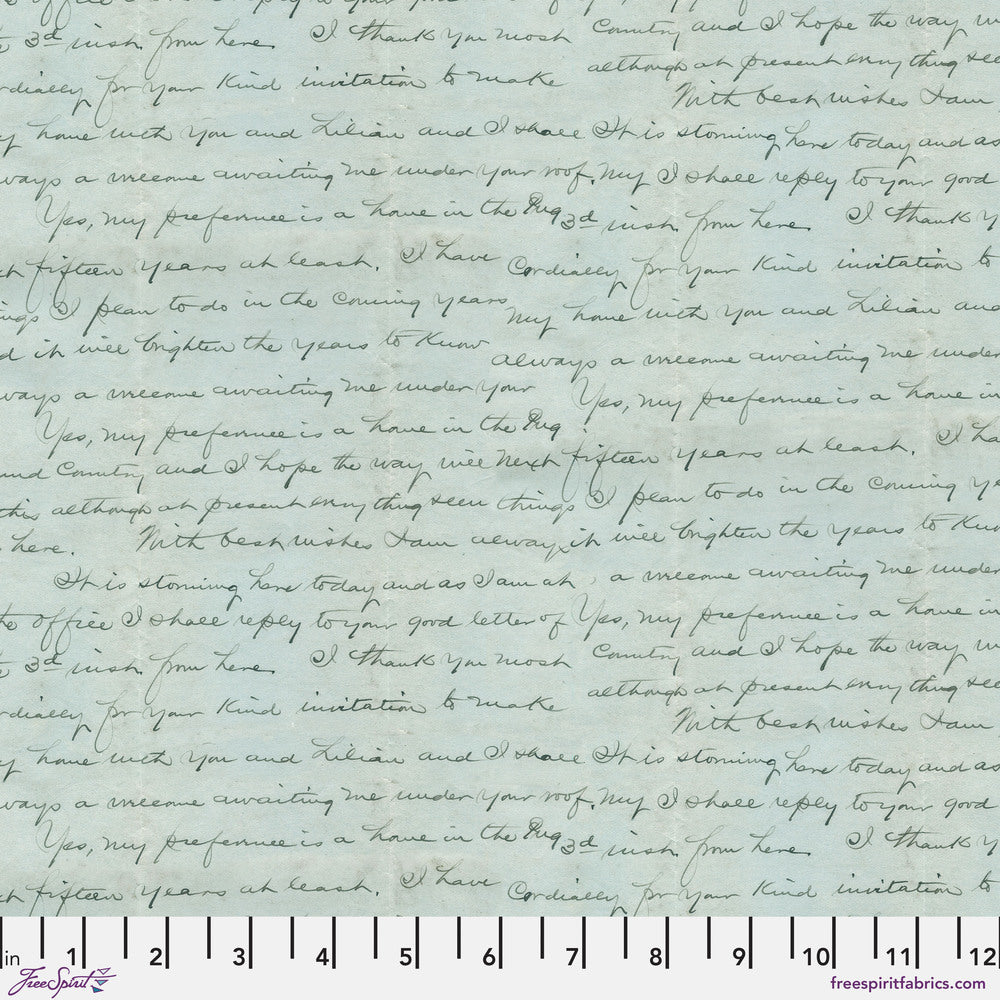 3d inst from here I thank you most Country and I hope the way
cordially for your kind invitation to make although at present everything seem
With best wishes I am
home with you and Lilian and I shall It is storming here today and as
always a welcome awaiting me under your roof. My I shall reply to your good
Yes, my preference is a home in the Pug 3d inst from here I thank
fifteen years at least. I have Cordially for your kind invitation to
things I plan to do in the coming years My home with you and Lilian and
it will brighten the years to know always a welcome awaiting me under
always a welcome awaiting me under your Yes, my preference is a home in
Yes, my preference is a home in the Pug
and Country and I hope the way will Next fifteen years at least. I have
this although at present everything seem things I plan to do in the coming
here. With best wishes I am always it will brighten the years to know
It is storming here today and as I am at , a welcome awaiting me under
the office I shall reply to your good letter of Yes, my preference is a home in
3d inst from here I thank you most Country and I hope the way
cordially for your kind invitation to make although at present everything seem
With best wishes I am
home with you and Lilian and I shall It is storming here today and as
always a welcome awaiting me under your roof. My I shall reply to your good
Yes, my preference is a home in the Pug 3d inst from here I thank
fifteen years at least. I have Cordially for your kind invitation to
in 1 2 3 4 5 6 7 8 9 10 11 12
FreeSpirit freespiritfabrics.com